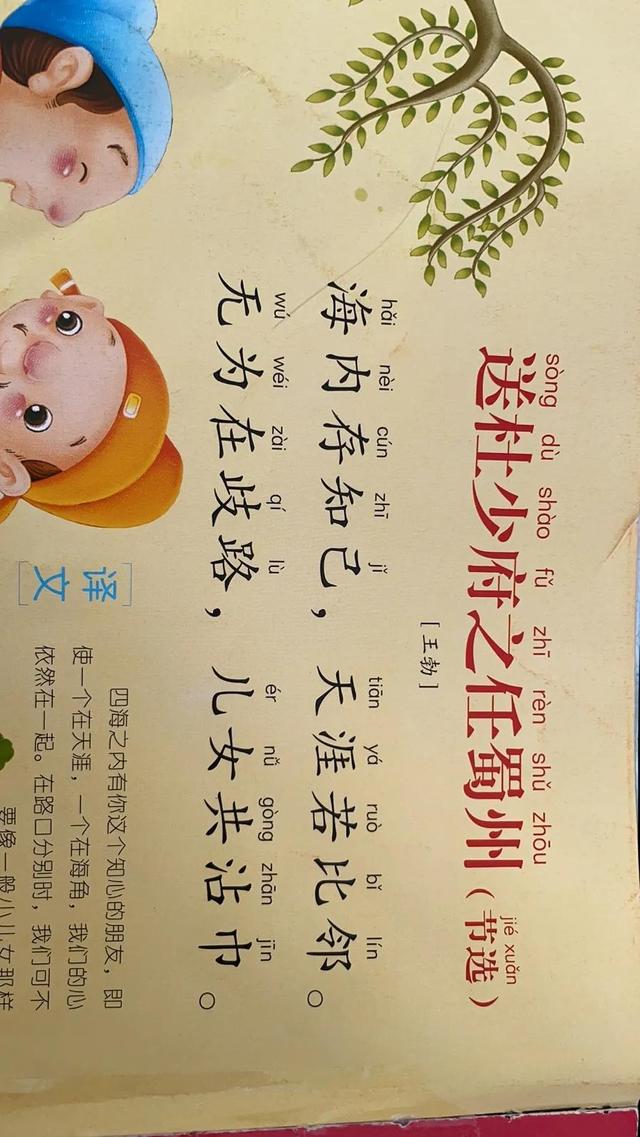 sòng dù shào fǔ zhī rèn shǔ zhōu jié xuǎn
送杜少府之任蜀州(节选)
[王勃]
hǎi nèi cún zhī jǐ tiān yá ruò bǐ lín
海内存知己,天涯若比邻。
wú wéi zài qí lù ér nǚ gòng zhān jīn
无为在歧路,儿女共沾巾。
[译文]
四海之内有你这个知心的朋友,即
使一个在天涯,一个在海角,我们的心
依然在一起。在路口分别时,我们可不
要像一般小儿女那样